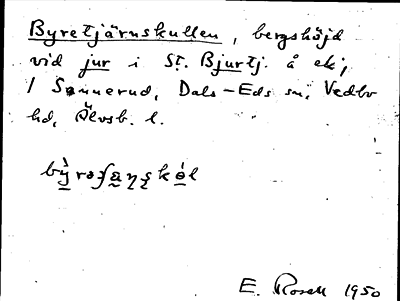 Byretjärnskullen, bergshöjd
vid jur i St. Bjurtj. å ek;
/ Sannerud, Dals-Eds sn, Vedbo
hd, Älvsb. l.
E. Rosell 1950